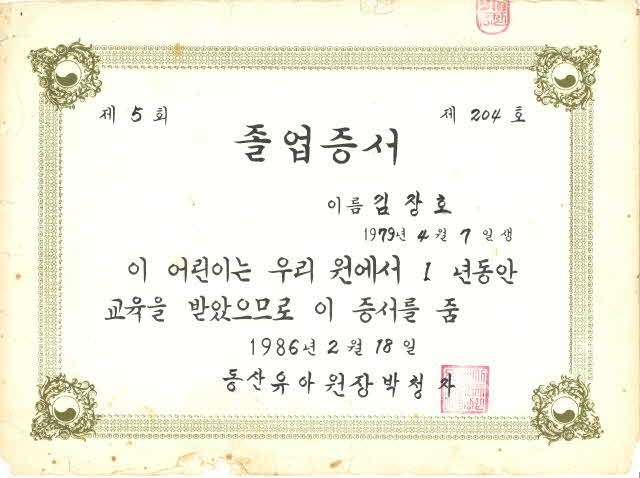 제 5 회
제 204 호
졸업증서
이름 김장호
1979년 4월 7일생
이 어린이는 우리 원에서 1 년동안
교육을 받았으므로 이 증서를 줌
1986년 2월 18일
동산유아원장 박청자